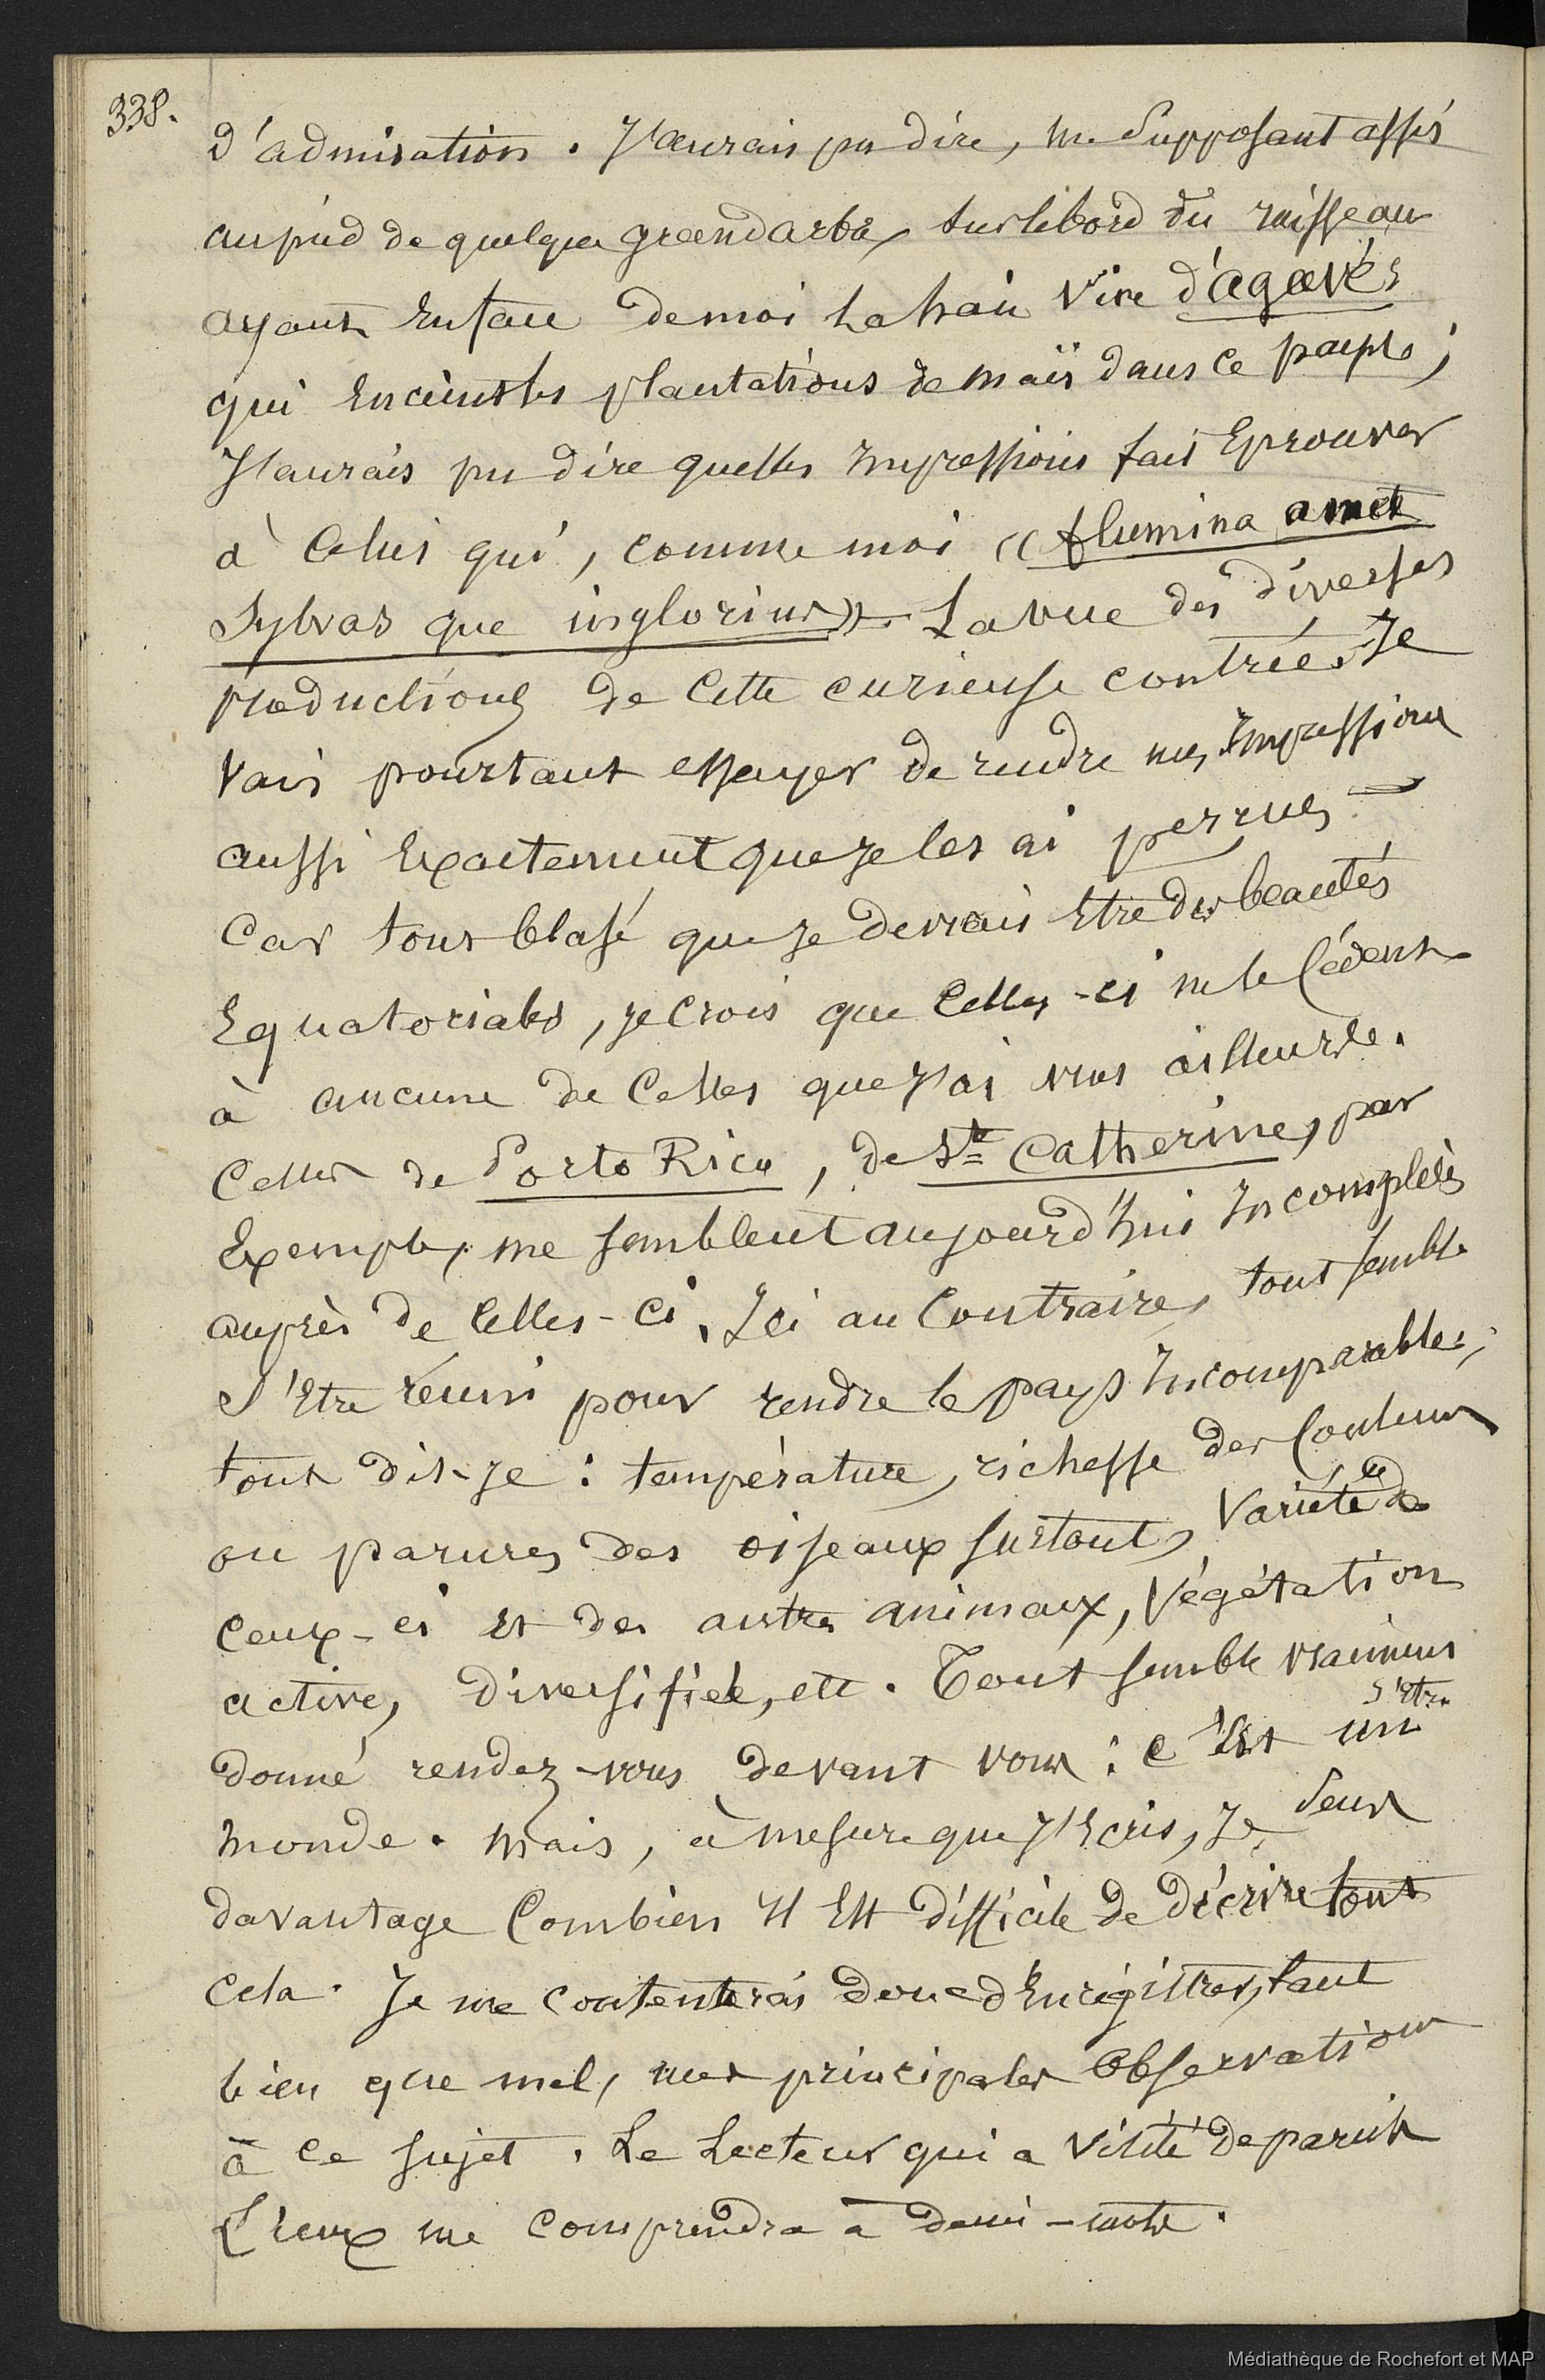 338.
d'admiration. J'aurais pu dire, me supposant assis
au pied de quelque grand arbre, sur le bord du ruisseau
ayant en face de moi la haie vive d'agavés
qui enceint les plantations de maïs dans ce pays;
J'aurais pu dire quelles impressions fait Eprouver
à celui qui, comme moi « flumina amet
Sylvas que inglorius ». La vue des diverses
productions de cette curieuse contrée. Je
vais pourtant essayer de rendre mes Impressions
aussi Exactement que je les ai perçues —
Car tout blasé que je devrais Etre des beautés
Equatoriales, je crois que celles-ci ne le cèdent
à aucune de celles que j'ai vues ailleurs.
Celles de Porto Rico, de Ste Catherine, par
Exemple, me semblent aujourd'hui Incomplètes
auprès de celles-ci. Ici au contraire, tout semble
s'Etre réuni pour rendre le pays Incomparable;
tout dis-je : température, richesse des couleurs
ou parures des oiseaux surtout, Variété de
ceux-ci et des autres animaux, Végétation
active, diversifiée, etc. Tout semble vraiment
s'Etre
donné rendez-vous devant vous : c'Est un
monde. Mais, à mesure que j'Ecris, Je sens
davantage combien Il Est difficile de décrire tout
cela. Je me contenterai donc d'Enrégistrer, tant
bien que mal, mes principales Observations
à ce sujet. Le Lecteur qui a visité de pareils
Lieux me comprendra à demi-mots.
Médiathèque de Rochefort et MAP